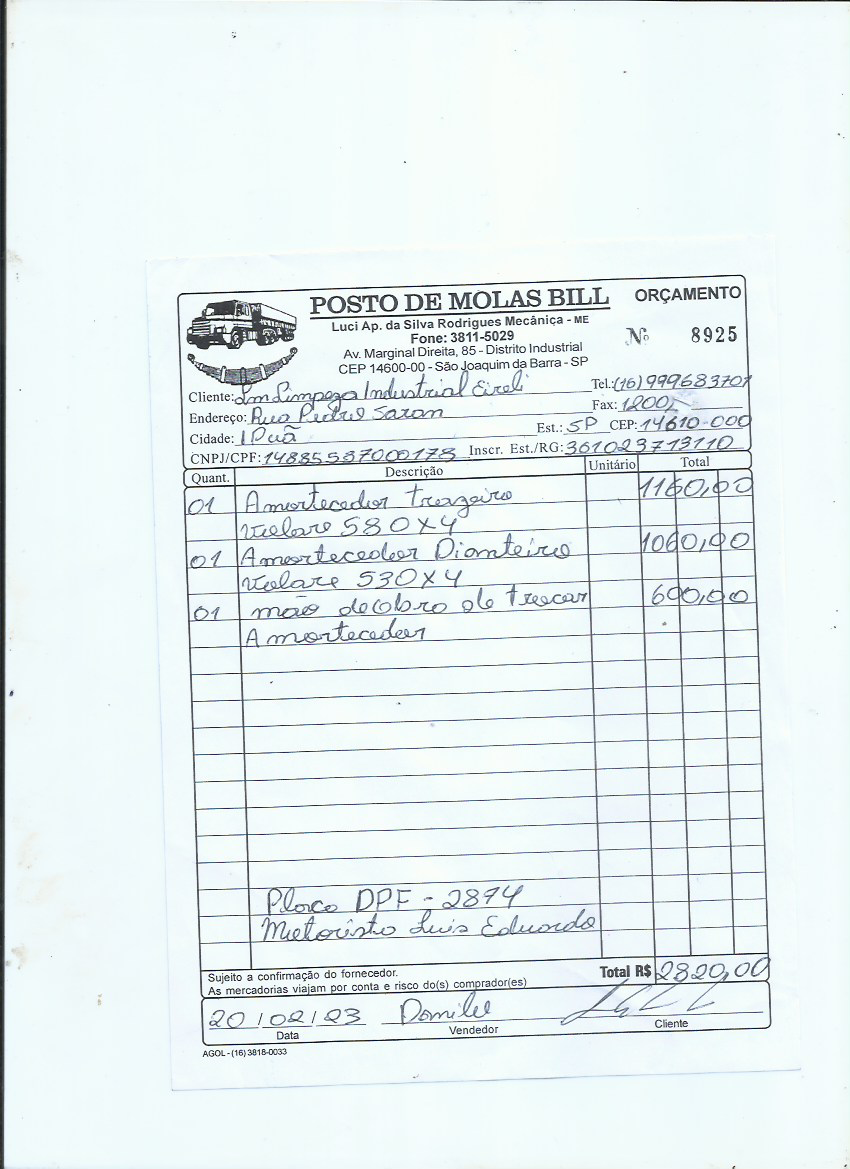 POSTO DE MOLAS BILL ORÇAMENTO
Luci Ap. da Silva Rodrigues Mecânica - ME
Fone: 3811-5029
Nº 8925
Av. Marginal Direita, 85 - Distrito Industrial
CEP 14600-00 - São Joaquim da Barra - SP
Cliente: Lm Limpeza Industrial Eireli Tel.: (16) 999683701
Endereço: Rua Pedro Saran Fax: 1200
Cidade: IPuã Est.: SP CEP: 14610-000
CNPJ/CPF: 14885537000178 Inscr. Est./RG: 361023713110
Quant. Descrição Unitário Total
01 Amortecedor trazeiro 1160,00
Volare 580X4
01 Amortecedor Dianteiro 1060,00
Volare 530X4
01 mão de obra de trocar 600,00
Amortecedor
Placa DPF - 2874
Motorista Luis Eduardo
Sujeito a confirmação do fornecedor.
As mercadorias viajam por conta e risco do(s) comprador(es)
Total R$ 2820,00
20/02/23
Data Vendedor Cliente
AGOL - (16) 3818-0033